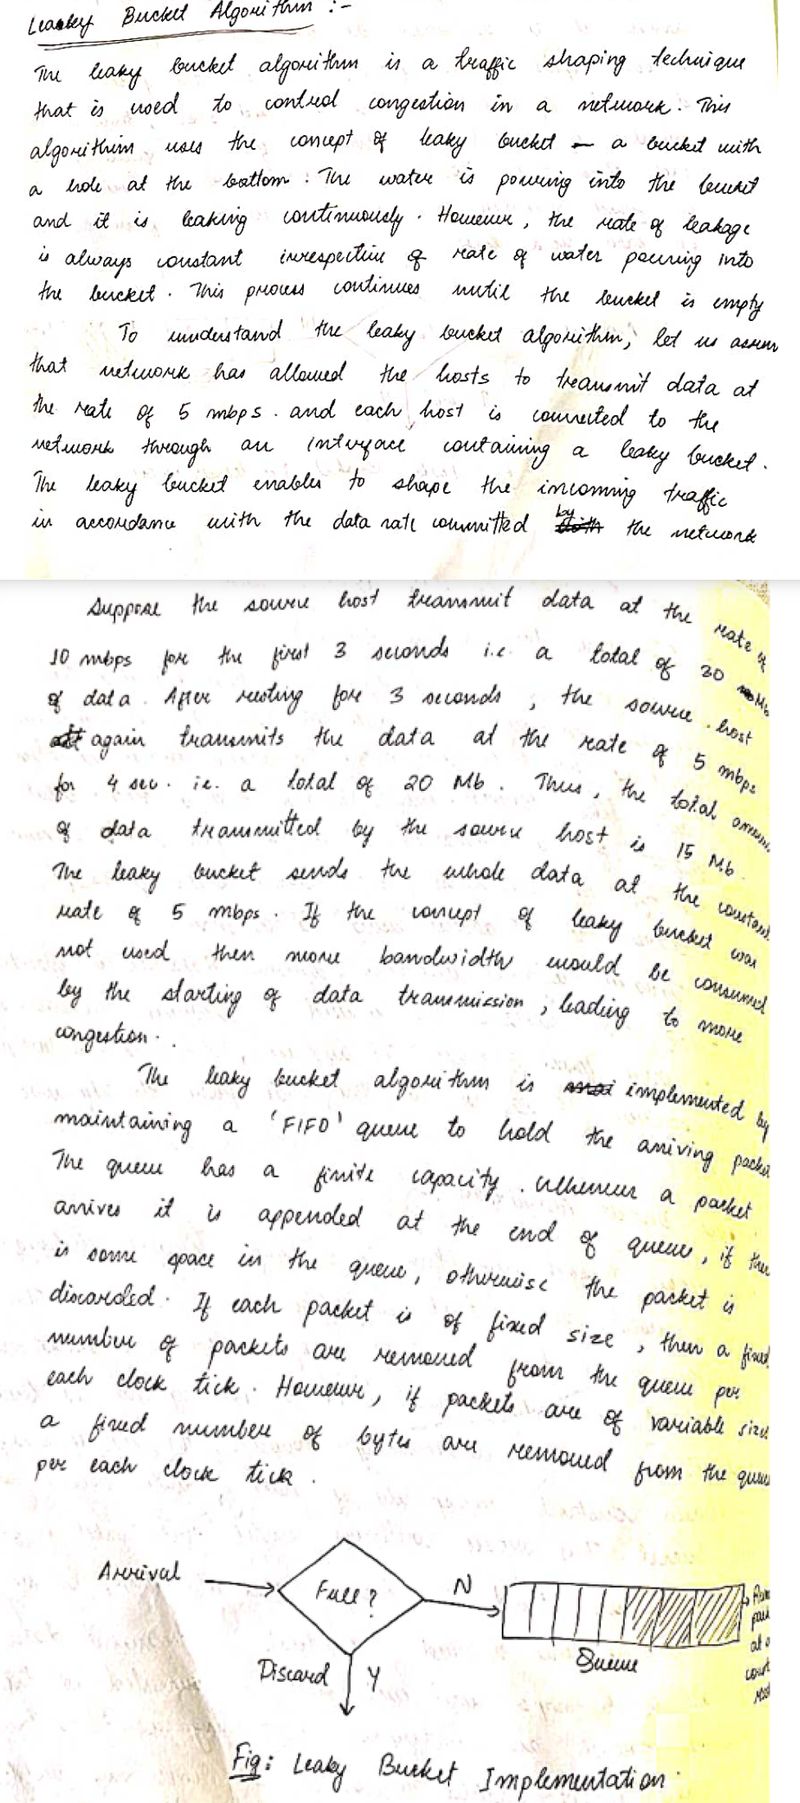 Leaky Bucket Algorithm :-
The leaky bucket algorithm is a traffic shaping technique
that is used to control congestion in a network. This
algorithim uses the concept of leaky bucket - a bucket with
a hole at the bottom. The water is pouring into the bucket
and it is leaking continuously. However, the rate of leakage
is always constant irrespective of rate of water pouring into
the bucket. This process continues until the bucket is empty
To understand the leaky bucket algorithm, let us assum
that network has allowed the hosts to transmit data at
the rate of 5 mbps. and each host is connected to the
network through an interface containing a leaky bucket.
The leaky bucket enables to shape the incoming traffic
in accordance with the data rate committed by the network
Suppose the source host transmit data at the rate of
10 mbps for the first 3 seconds i.e a total of 30 Mb
of data. After resting for 3 seconds, the source host
again transmits the data at the rate of 5 mbps
for 4 sec. i.e. a total of 20 Mb. Thus, the total amoun
of data transmitted by the source host is 15 Mb
The leaky bucket sends the whole data at the constant
rate of 5 mbps. If the concept of leaky bucket was
not used then more bandwidth would be consumed
by the starting of data transmission, leading to more
congestion.
The leaky bucket algorithm is implemented by
maintaining a 'FIFO' queue to hold the arriving packe
The queue has a finite capacity. Whenever a packet
arrives it is appended at the end of queue, if ther
is some space in the queue, otherwise the packet is
discarded. If each packet is of fixed size, then a fixed
number of packets are removed from the queue per
each clock tick. However, if packets are of variable size
a fixed number of bytes are removed from the queue
per each clock tick.
Arrival
Full?
N
Discard
Y
Queue
at a
Fig: Leaky Bucket Implementation